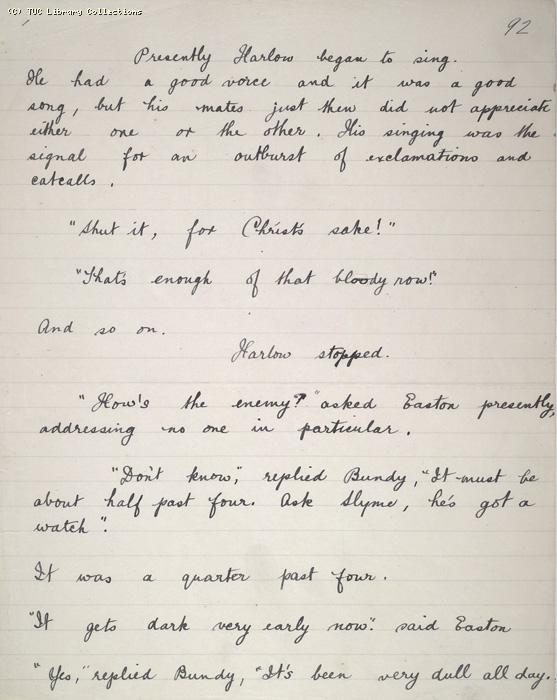 (C) TUC Library Collections
92
Presently Harlow began to sing.
He had a good voice and it was a good
song, but his mates just then did not appreciate
either one or the other. His singing was the
signal for an outburst of exclamations and
catcalls.
"Shut it, for Christ's sake!"
"That's enough of that bloody row!"
And so on.
Harlow stopped.
"How's the enemy?" asked Easton presently,
addressing no one in particular.
"Don't know," replied Bundy, "It must be
about half past four. Ask Slyme, he's got a
watch".
It was a quarter past four.
"It gets dark very early now". said Easton
"Yes," replied Bundy, "It's been very dull all day.